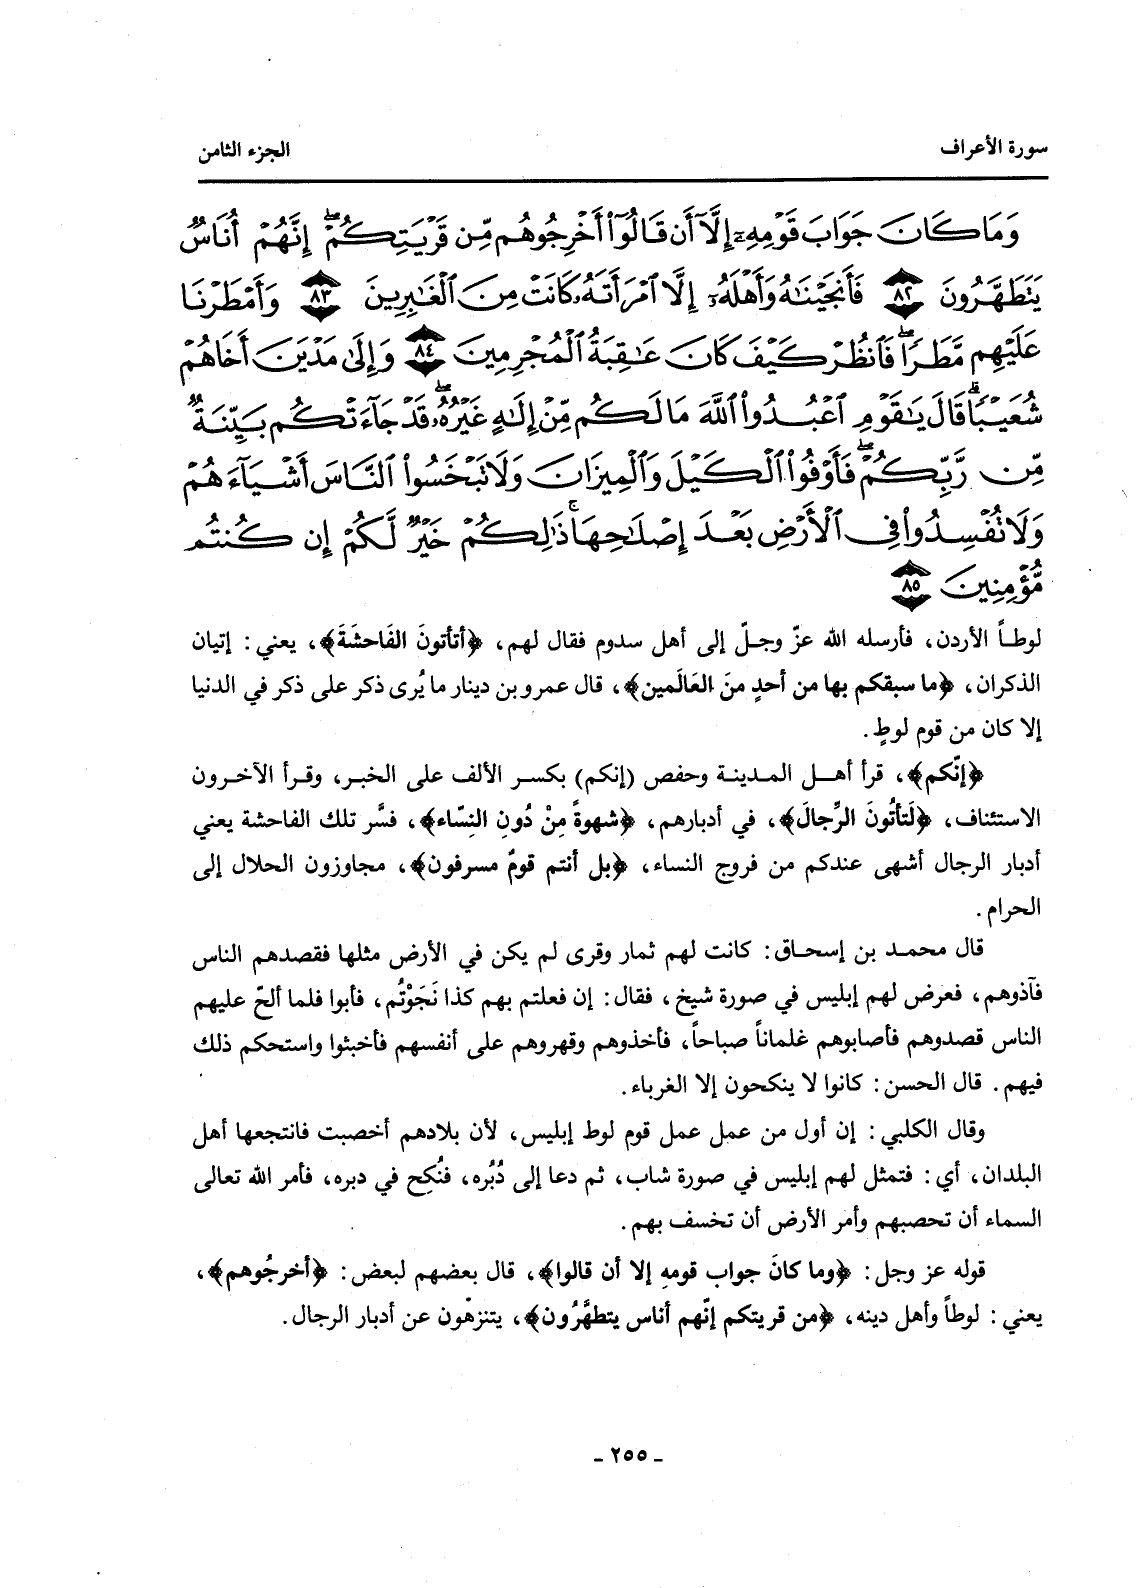 سورة الأعراف
الجزء الثامن
وَمَا كَانَ جَوَابَ قَوْمِهِۦٓ إِلَّآ أَن قَالُوٓا۟ أَخْرِجُوهُم مِّن قَرْيَتِكُمْ ۖ إِنَّهُمْ أُنَاسٌ
يَتَطَهَّرُونَ ٨٢ فَأَنجَيْنَـٰهُ وَأَهْلَهُۥٓ إِلَّا ٱمْرَأَتَهُۥ كَانَتْ مِنَ ٱلْغَـٰبِرِينَ ٨٣ وَأَمْطَرْنَا
عَلَيْهِم مَّطَرًا ۖ فَٱنظُرْ كَيْفَ كَانَ عَـٰقِبَةُ ٱلْمُجْرِمِينَ ٨٤ وَإِلَىٰ مَدْيَنَ أَخَاهُمْ
شُعَيْبًا ۗ قَالَ يَـٰقَوْمِ ٱعْبُدُوا۟ ٱللَّهَ مَا لَكُم مِّنْ إِلَـٰهٍ غَيْرُهُۥ ۖ قَدْ جَآءَتْكُم بَيِّنَةٌ
مِّن رَّبِّكُمْ ۖ فَأَوْفُوا۟ ٱلْكَيْلَ وَٱلْمِيزَانَ وَلَا تَبْخَسُوا۟ ٱلنَّاسَ أَشْيَآءَهُمْ
وَلَا تُفْسِدُوا۟ فِى ٱلْأَرْضِ بَعْدَ إِصْلَـٰحِهَا ۚ ذَٰلِكُمْ خَيْرٌ لَّكُمْ إِن كُنتُم
مُّؤْمِنِينَ ٨٥
لوطاً الأردن، فأرسله الله عزّ وجلّ إلى أهل سدوم فقال لهم، ﴿أتأتونَ الفَاحشَةَ﴾، يعني: إتيان
الذكران، ﴿ما سبقكم بها من أحدٍ منَ العَالَمين﴾، قال عمرو بن دينار ما يُرى ذكر على ذكر في الدنيا
إلا كان من قوم لوطٍ.
﴿إنّكم﴾، قرأ أهل المدينة وحفص (إنكم) بكسر الألف على الخبر، وقرأ الآخرون
الاستئناف، ﴿لَتأتُونَ الرِّجالَ﴾، في أدبارهم، ﴿شهوةً مِنْ دُونِ النِسّاء﴾، فسَّر تلك الفاحشة يعني
أدبار الرجال أشهى عندكم من فروج النساء، ﴿بل أنتم قومٌ مسرفون﴾، مجاوزون الحلال إلى
الحرام.
قال محمد بن إسحاق: كانت لهم ثمار وقرى لم يكن في الأرض مثلها فقصدهم الناس
فآذوهم، فعرض لهم إبليس في صورة شيخ، فقال: إن فعلتم بهم كذا نَجَوْتُم، فأبوا فلما ألحّ عليهم
الناس قصدوهم فأصابوهم غلماناً صباحاً، فأخذوهم وقهروهم على أنفسهم فأخبثوا واستحكم ذلك
فيهم. قال الحسن: كانوا لا ينكحون إلا الغرباء.
وقال الكلبي: إن أول من عمل عمل قوم لوط إبليس، لأن بلادهم أخصبت فانتجعها أهل
البلدان، أي: فتمثل لهم إبليس في صورة شاب، ثم دعا إلى دُبُره، فنُكِح في دبره، فأمر الله تعالى
السماء أن تحصبهم وأمر الأرض أن تخسف بهم.
قوله عز وجل: ﴿وما كانَ جواب قومهِ إلا أن قالوا﴾، قال بعضهم لبعض: ﴿أخرجُوهم﴾،
يعني: لوطاً وأهل دينه، ﴿من قريتكم إنّهم أناس يتطهَّرُون﴾، يتنزهّون عن أدبار الرجال.
ـ ٢٥٥ ـ